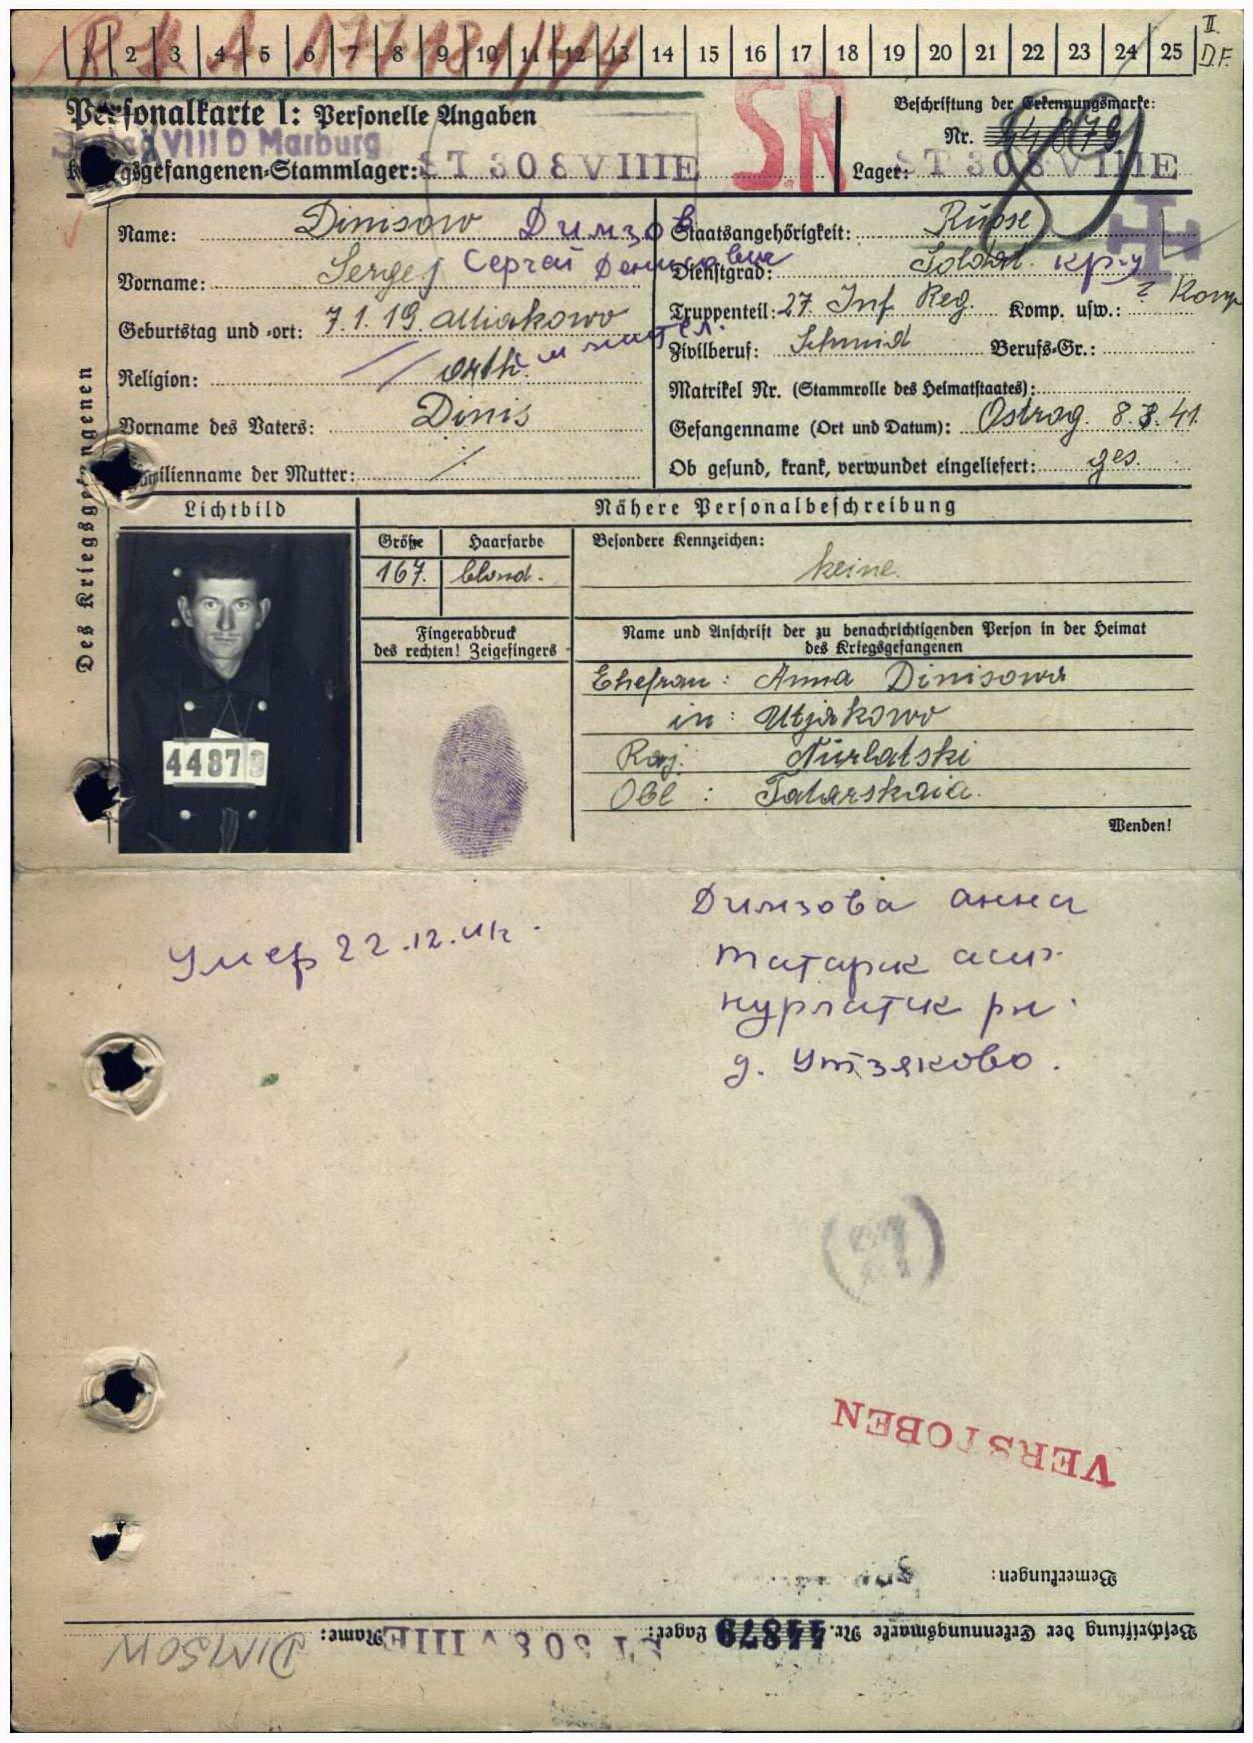 1 2 3 4 5 6 7 8 9 10 11 12 13 14 15 16 17 18 19 20 21 22 23 24 25
II.
D.F.
Personalkarte I: Personelle Angaben
VIII D Marburg
Kriegsgefangenen-Stammlager: ST 308 VIIIE
S.R
Beschriftung der Erkennungsmarke:
Nr. 44879
Lager: ST 308 VIIIE
Des Kriegsgefangenen
Name: Dinisow Димзов
Vorname: Sergej Сергай Денисович
Geburtstag und -ort: 7.1.19
Religion: orth.
Vorname des Vaters: Dinis
Familienname der Mutter: /
Staatsangehörigkeit: Russe
Dienstgrad: Soldat кр-ц
Truppenteil: 27 Inf Reg. Komp. usw.: ? Komp
Zivilberuf: Schmid Berufs-Gr.:
Matrikel Nr. (Stammrolle des Heimatstaates):
Gefangenname (Ort und Datum): Ostrog. 8.8.41.
Ob gesund, krank, verwundet eingeliefert: ges.
Lichtbild
Nähere Personalbeschreibung
Größe Haarfarbe Besondere Kennzeichen:
167. blond. keine.
Fingerabdruck
des rechten! Zeigefingers
Name und Anschrift der zu benachrichtigenden Person in der Heimat
des Kriegsgefangenen
Ehefrau: Anna Dinisowa
in: Utjakowo
Raj. Nurlatski
Obl: Tatarskaia.
44879
Wenden!
Умер 22.12.41г.
Димзова анна
татарск асср
нурлатск рн
д. Утзяково.
VERSTOBEN
Bemerkungen:
Beschriftung der Erkennungsmarke Nr. 44879 Lager: ST 308 VIIIE Name: DIMSOW